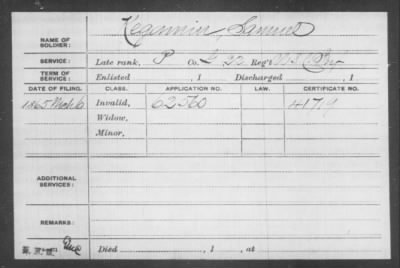 NAME OF SOLDIER: Kegannin, Samuel
SERVICE: Late rank, P Co. G 22 Reg't
TERM OF SERVICE: Enlisted , 1 Discharged , 1
DATE OF FILING. CLASS. APPLICATION NO. LAW. CERTIFICATE NO.
1865 Mch 6 Invalid, 62560 41719
Widow,
Minor,
ADDITIONAL SERVICES:
REMARKS:
Died , 1 , at